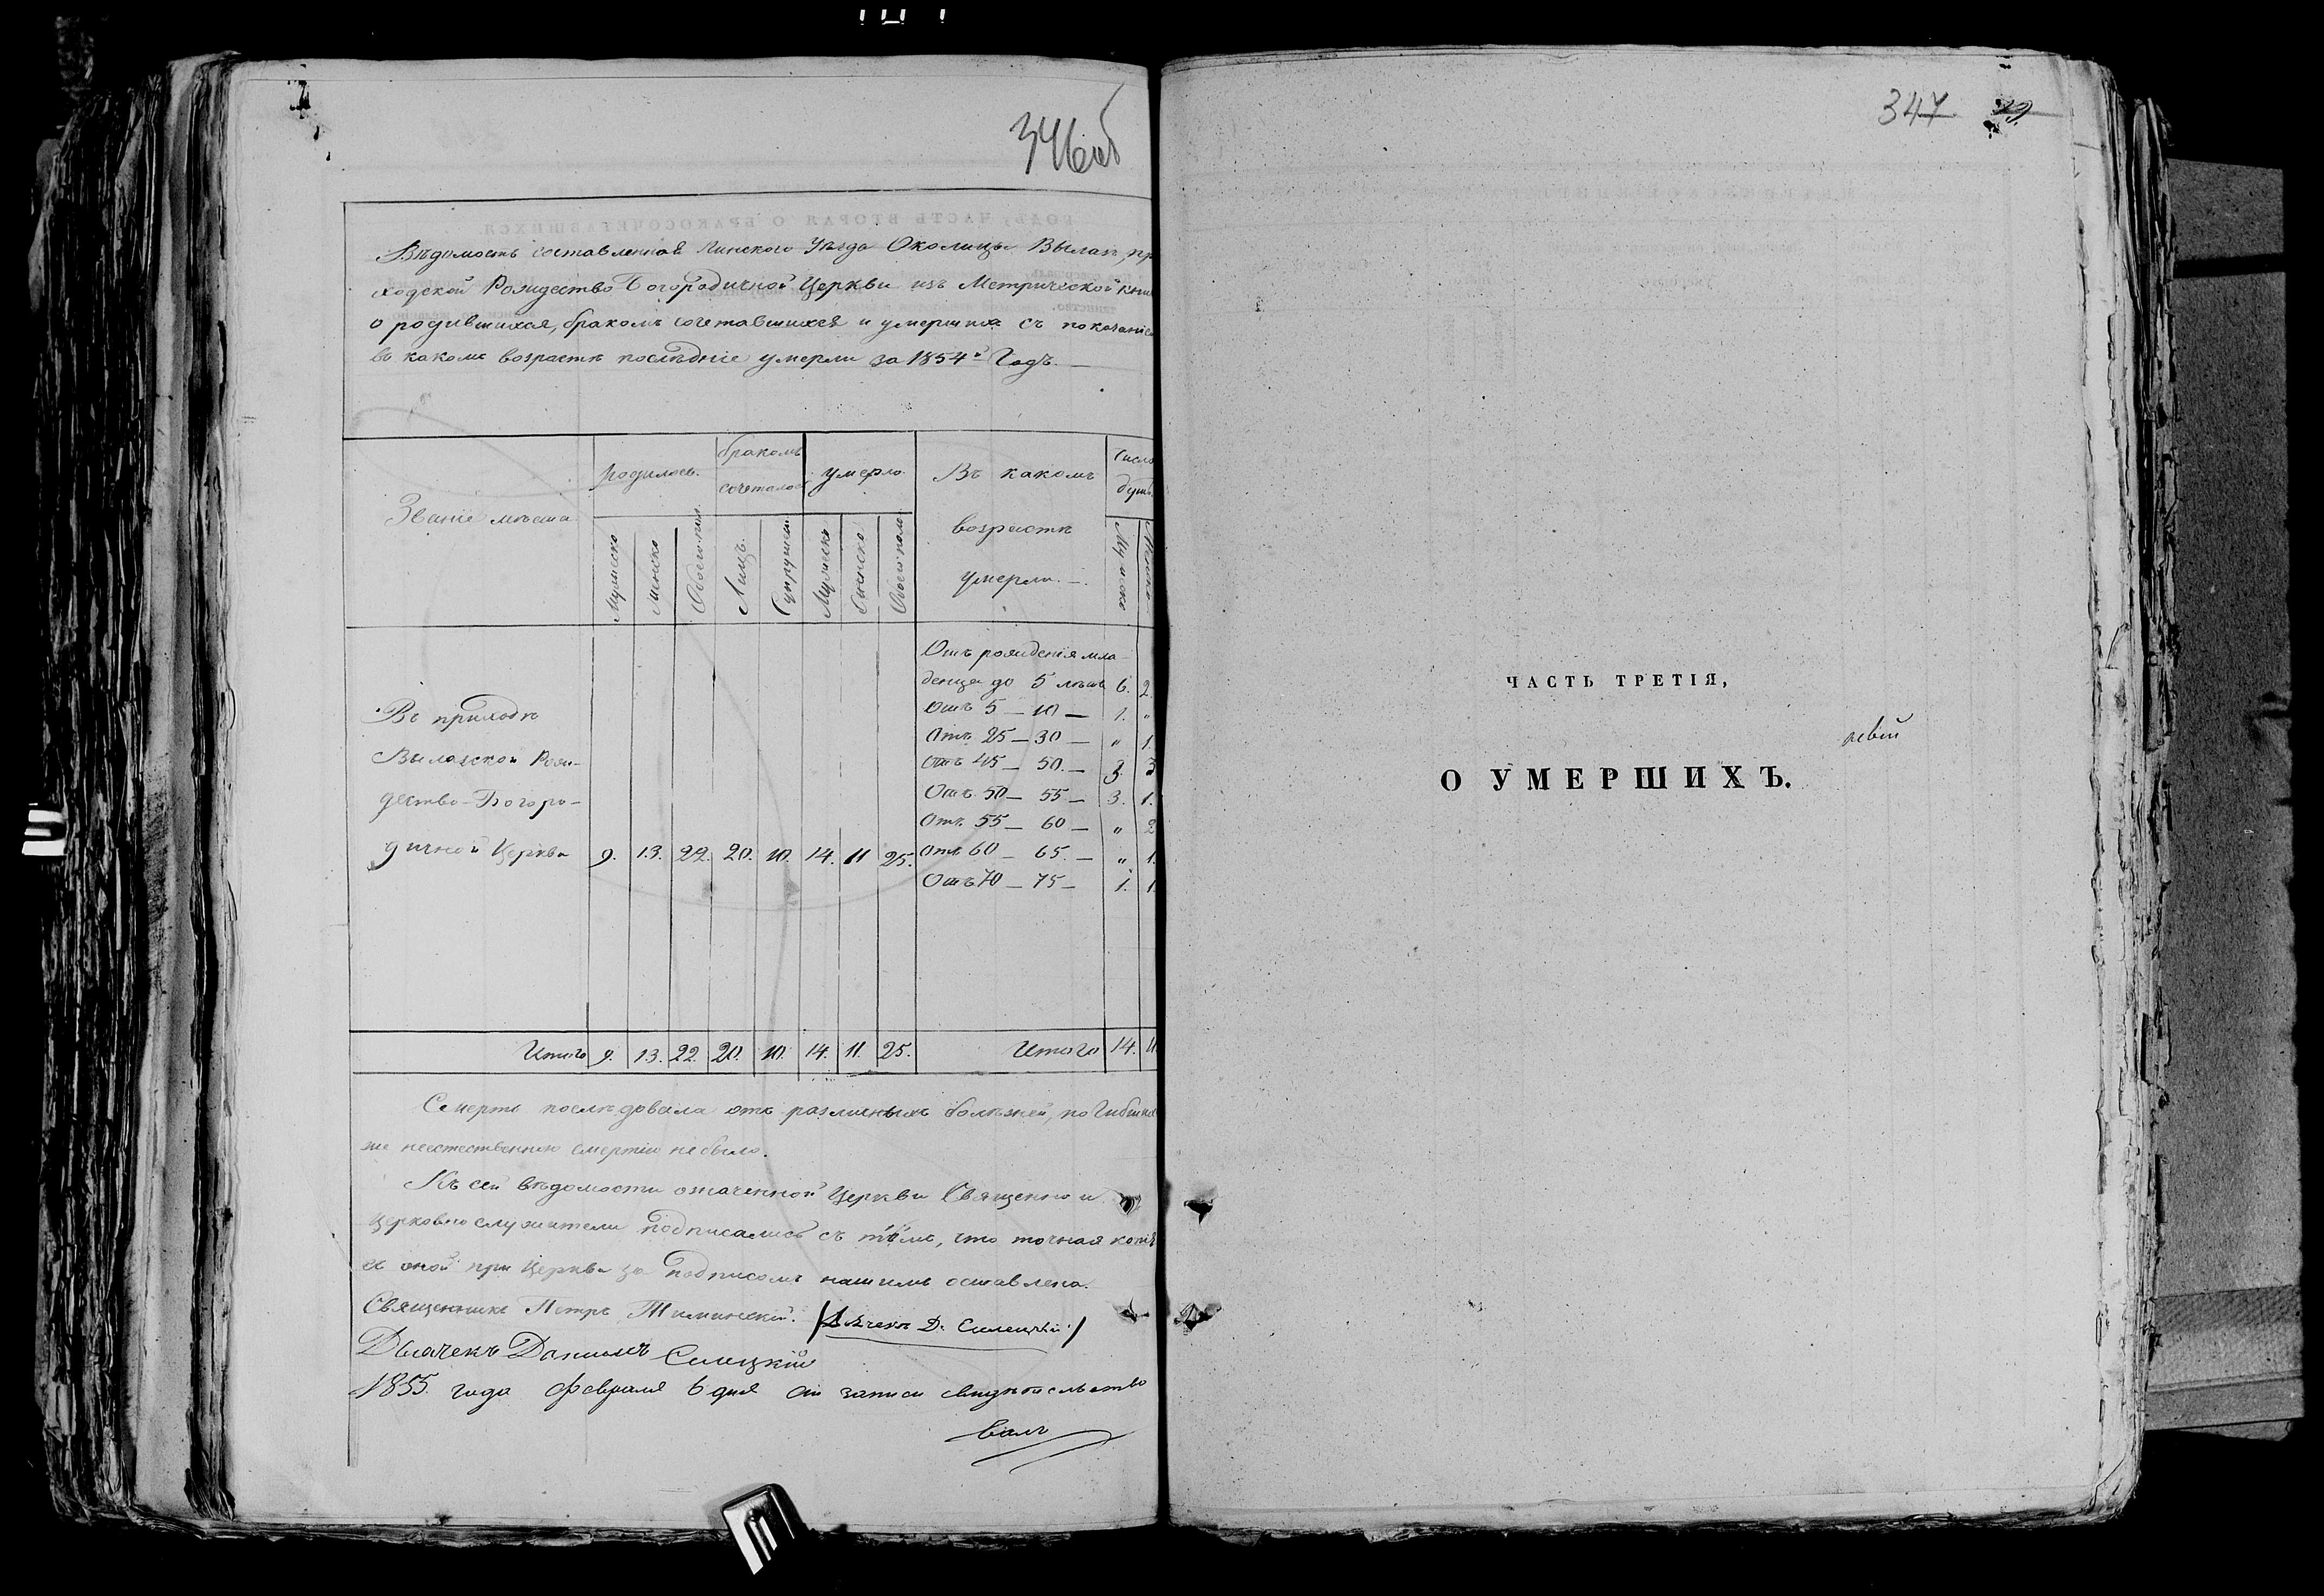 346об
Вѣдомость составленная Пинского Уѣзда Околицы Вылаз, при
ходской Рождество Богородичной Церкви изъ Метрической книг
о родившихся, бракомъ сочетавшихся и умершихъ съ показаніем
въ какомъ возрастѣ послѣдніе умерли за 1854й Годъ.
Званіе мѣста
родилось.
бракомъ
сочеталос
умерло.
Въ какомъ
возрастѣ
умерли.
Число
душъ
Мужеско
Женско
Обоего пол.
Лицъ.
Супружеш.
Мужеско
Женско
Обоего пола
Мужеско
Женско
Отъ рожденія мла
денца до 5 лѣтъ 6. 2.
Отъ 5 — 10 — 1. "
Отъ 25 — 30 — " 1.
Отъ 45 — 50. — 3. 3
Отъ 50 — 55 — 3. 1.
Отъ 55 — 60 — " 2
Отъ 60 — 65. — " 1.
Отъ 70 — 75 — 1. 1
Въ приходѣ
Вылазской Рож-
дество-Богоро-
дичной Церкви 9. 13. 22. 20. 10. 14. 11 25.
Итого 9. 13. 22. 20. 10. 14. 11. 25. Итого 14. 11
Смерть послѣдовала отъ различныхъ болѣзней, погибших
же неестественною смертію не было.
Къ сей вѣдомости означенной Церкви Священно и
церковно служители подписались съ тѣмъ, что точная копія
съ оной при Церкви за подписомъ нашимъ оставлена.
Священникъ Петръ Тиминскій. /Дьячекъ Д. Силецкій/
Дьячекъ Данiилъ Силецкій
1855 года февраля 6 дня сіи записи свидѣтельство
валъ
347 19.
ЧАСТЬ ТРЕТІЯ,
О УМЕРШИХЪ.